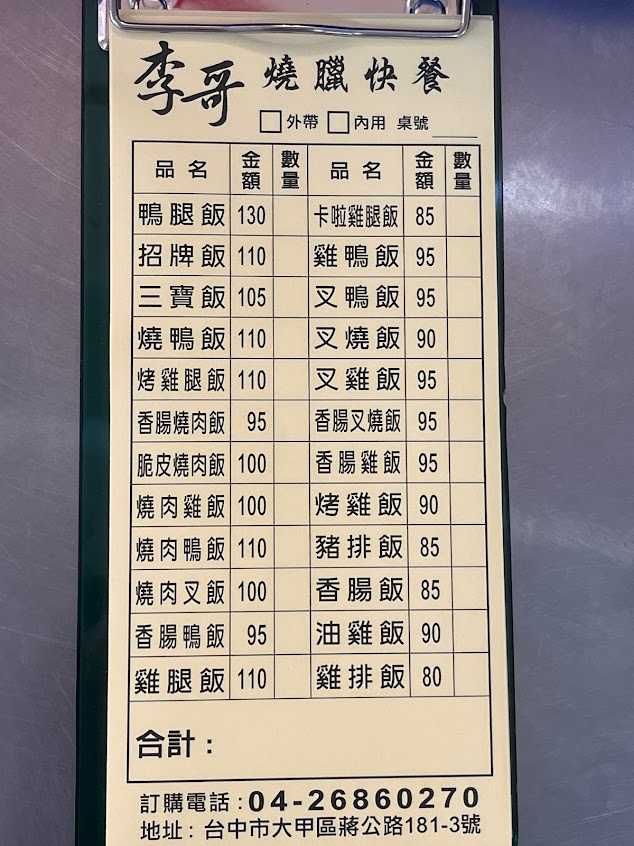 李哥 燒臘快餐
□外帶 □內用 桌號____
品名 金額 數量 品名 金額 數量
鴨腿飯 130 卡啦雞腿飯 85
招牌飯 110 雞鴨飯 95
三寶飯 105 叉鴨飯 95
燒鴨飯 110 叉燒飯 90
烤雞腿飯 110 叉雞飯 95
香腸燒肉飯 95 香腸叉燒飯 95
脆皮燒肉飯 100 香腸雞飯 95
燒肉雞飯 100 烤雞飯 90
燒肉鴨飯 110 豬排飯 85
燒肉叉飯 100 香腸飯 85
香腸鴨飯 95 油雞飯 90
雞腿飯 110 雞排飯 80
合計：
訂購電話：04-26860270
地址：台中市大甲區蔣公路181-3號